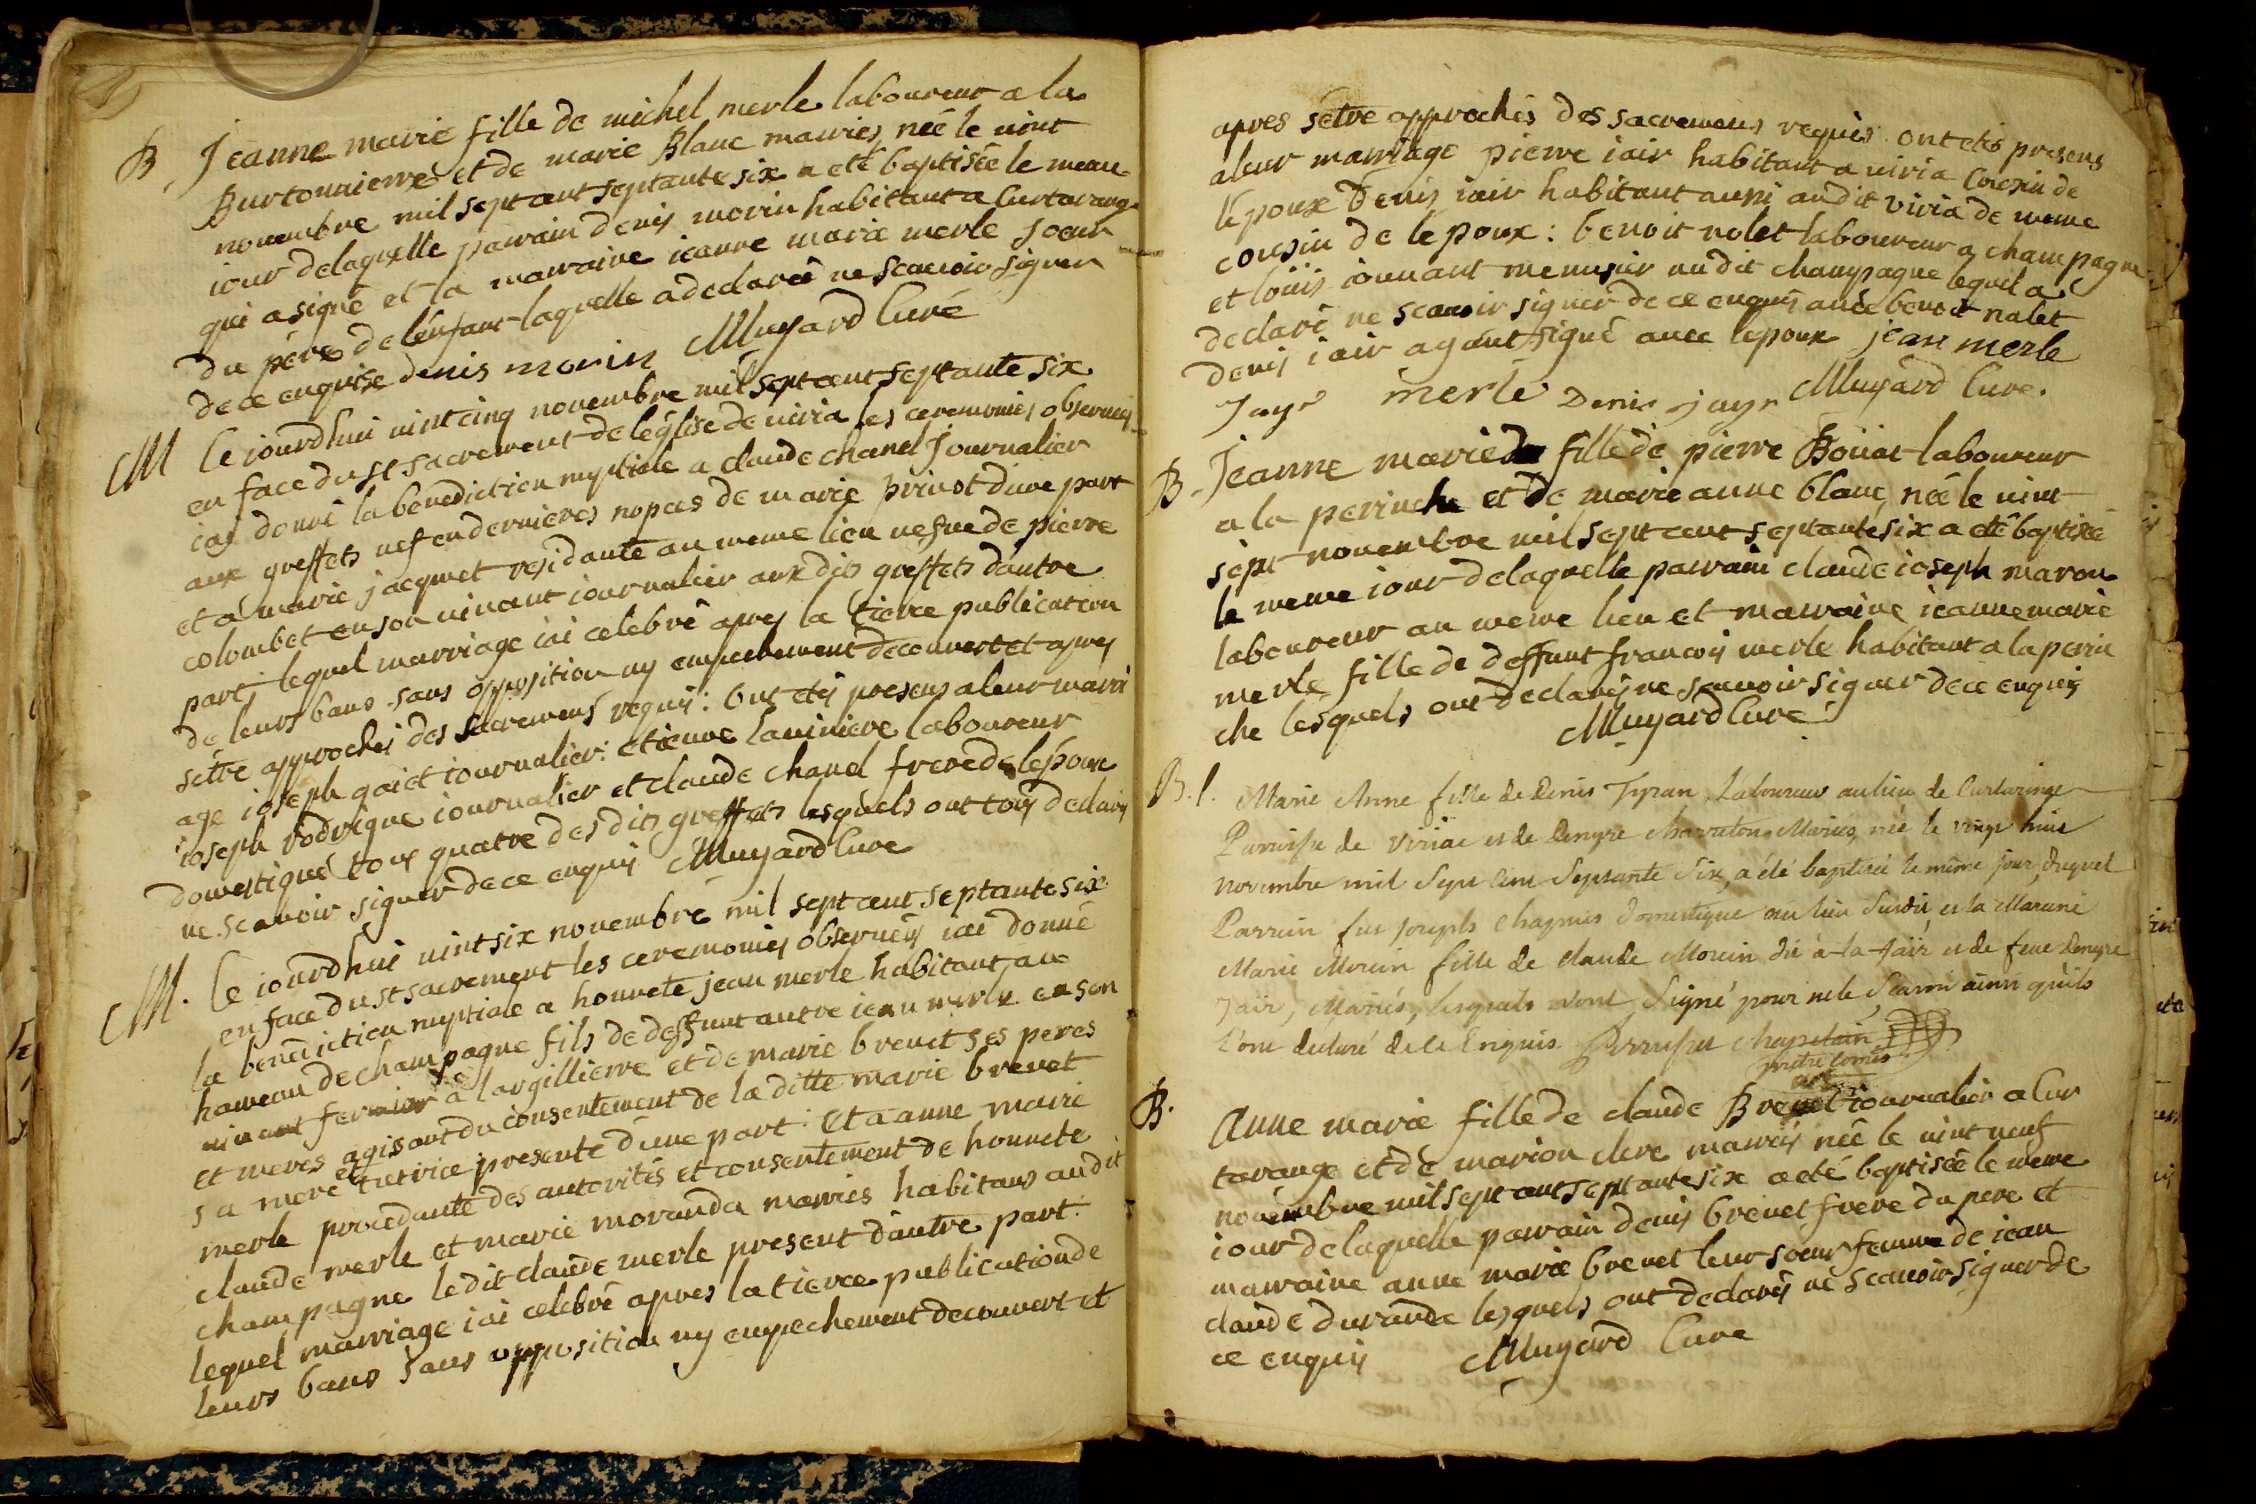 B Jeanne marie fille de michel merle laboureur a la
Burtonnierre et de marie Blanc mariés née le vint
novembre mil sept cent septante six a eté baptisée le meme
iour de laquelle parrain denis morin habitant a Curtarange
qui a signé et la marraine ieanne marie merle soeur
du pére de lenfant laquelle a declaré ne scavoir signer
de ce enquise denis morin Muyard Curé
M Ce iourdhui vint cinq novembre mil sept cent septante six
en face du st sacrement de léglise de viria les ceremonies observées
iai donné la benediction nuptiale a claude chanel Journalier
aux greffets vef en dernieres nopces de marie privot dune part
et a marie jacquet residante au meme lieu vefve de pierre
colombet en son vivant iournalier aux dits greffets dautre
part lequel marriage iai celebré apres la tierce publication
de leurs bans sans opposition ny empechement decouvert et apres
sétre approchés des sacremens requis : Ont etés presens a leur marri
age ioseph gaiet iournalier : etienne laviniere laboureur
ioseph rodrigue iournalier et claude chanel frere de lépoux
domestique tous quatre des dits greffets lesquels ont tous declarés
ne scavoir signer de ce enquis Muyard Cure
M. Ce iourdhui vint six novembre mil sept cent septante six
en face du st sacrement les ceremonies observées iai donné
la benediction nuptiale a honnete jean merle habitant au
hameau de champagne fils de deffunt autre iean merle en son
vivant fermier a largillierre et de marie brevet ses peres
et meres agisant du consentement de la ditte marie brevet
sa mere et tutrice presente dune part : Et a anne marie
merle procedante des autorités et consentement de honnete
claude merle et marie moranda marries habitans au dit
champagne le dit claude merle present dautre part
lequel marriage iai celebré apres la tierce publication de
leurs bans sans opposition ny empechement decouvert et
apres sétre approchés des sacremens requis ont etés presens
a leur marriage pierre iair habitant a viria cousin de
lépoux Denis iair habitant aussi au dit viria de meme
cousin de lépoux : benoit nolet laboureur a champagne
et loüis iouvant menusier au dit champagne lequel a
declaré ne scavoir signer de ce enquis avec benoit nalet
denis iair ayant signé avec lepoux jean merle
Jayr merle Denis jayr Muyard Cure.
B. Jeanne marie fille de pierre Boüat laboureur
a la perinche et de marie anne blanc, née le vint
sept novembre mil sept cent septante six a eté baptisée
le meme iour de laquelle parrain claude ioseph maron
laboureur au meme lieu et marraine ieanne marie
merle fille de deffunt francois merle habitant a la perin
che lesquels ont declarés ne scavoir signer de ce enquis
Muyard Cure
B. l. Marie Anne fille de Denis Tyran Laboureur au lieu de Curtaringe
Parroisse de Viriac et de Denyse charveton Mariés, née le vingt huit
novembre mil Sept Cent Septante Six, a été baptisée le même jour, duquel
Parrein fut Joseph Chagnus domestique au lieu Susdit et la Mareine
Marie Morein fille de Claude Morein dit à-la-Jaïr et de feue Denyse
Jaïr, Mariés, lesquels n'ont Signé pour ne le Scavoir ainsi qu'ils
l'ont declaré de ce Enquis. chapelain
prêtre comis
B. Anne marie fille de claude Brevet iournalier a Cur
tarange et de marion clere marriés née le vint neuf
novembre mil sept cent septante six a eté baptisée le meme
iour de laquelle parrain denis brevet frere du pere et
marraine anne marie brevet leur soeur femme de iean
claude durande lesquels ont declarés ne scavoir signer de
ce enquis Muyard Cure